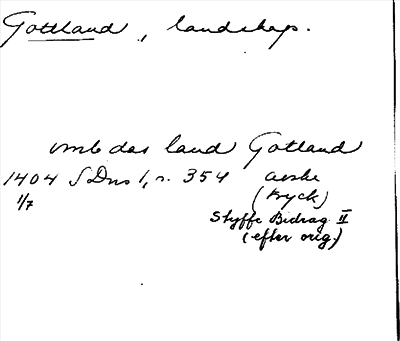 Gottland, landskap.
vmb das land Gotland
1404 SDns 1, n. 354 avskr
1/7 (tryck)
Styffe Bidrag II
(efter orig.)